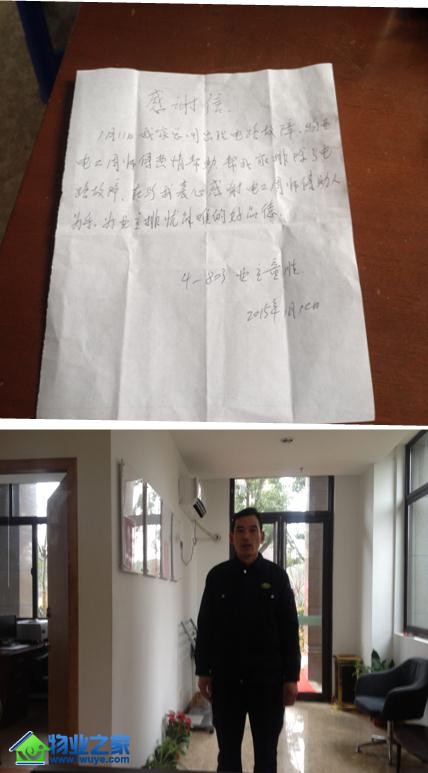 感谢信.
1月11日我家空开出现电路故障、物业
电工周师傅热情帮助帮我家排除了电
路故障, 在此我衷心感谢电工周师傅助人
为乐, 为业主排忧解难的好品德.
4-803 业主童胜
2015年1月12日
物业之家
www.wuye.com